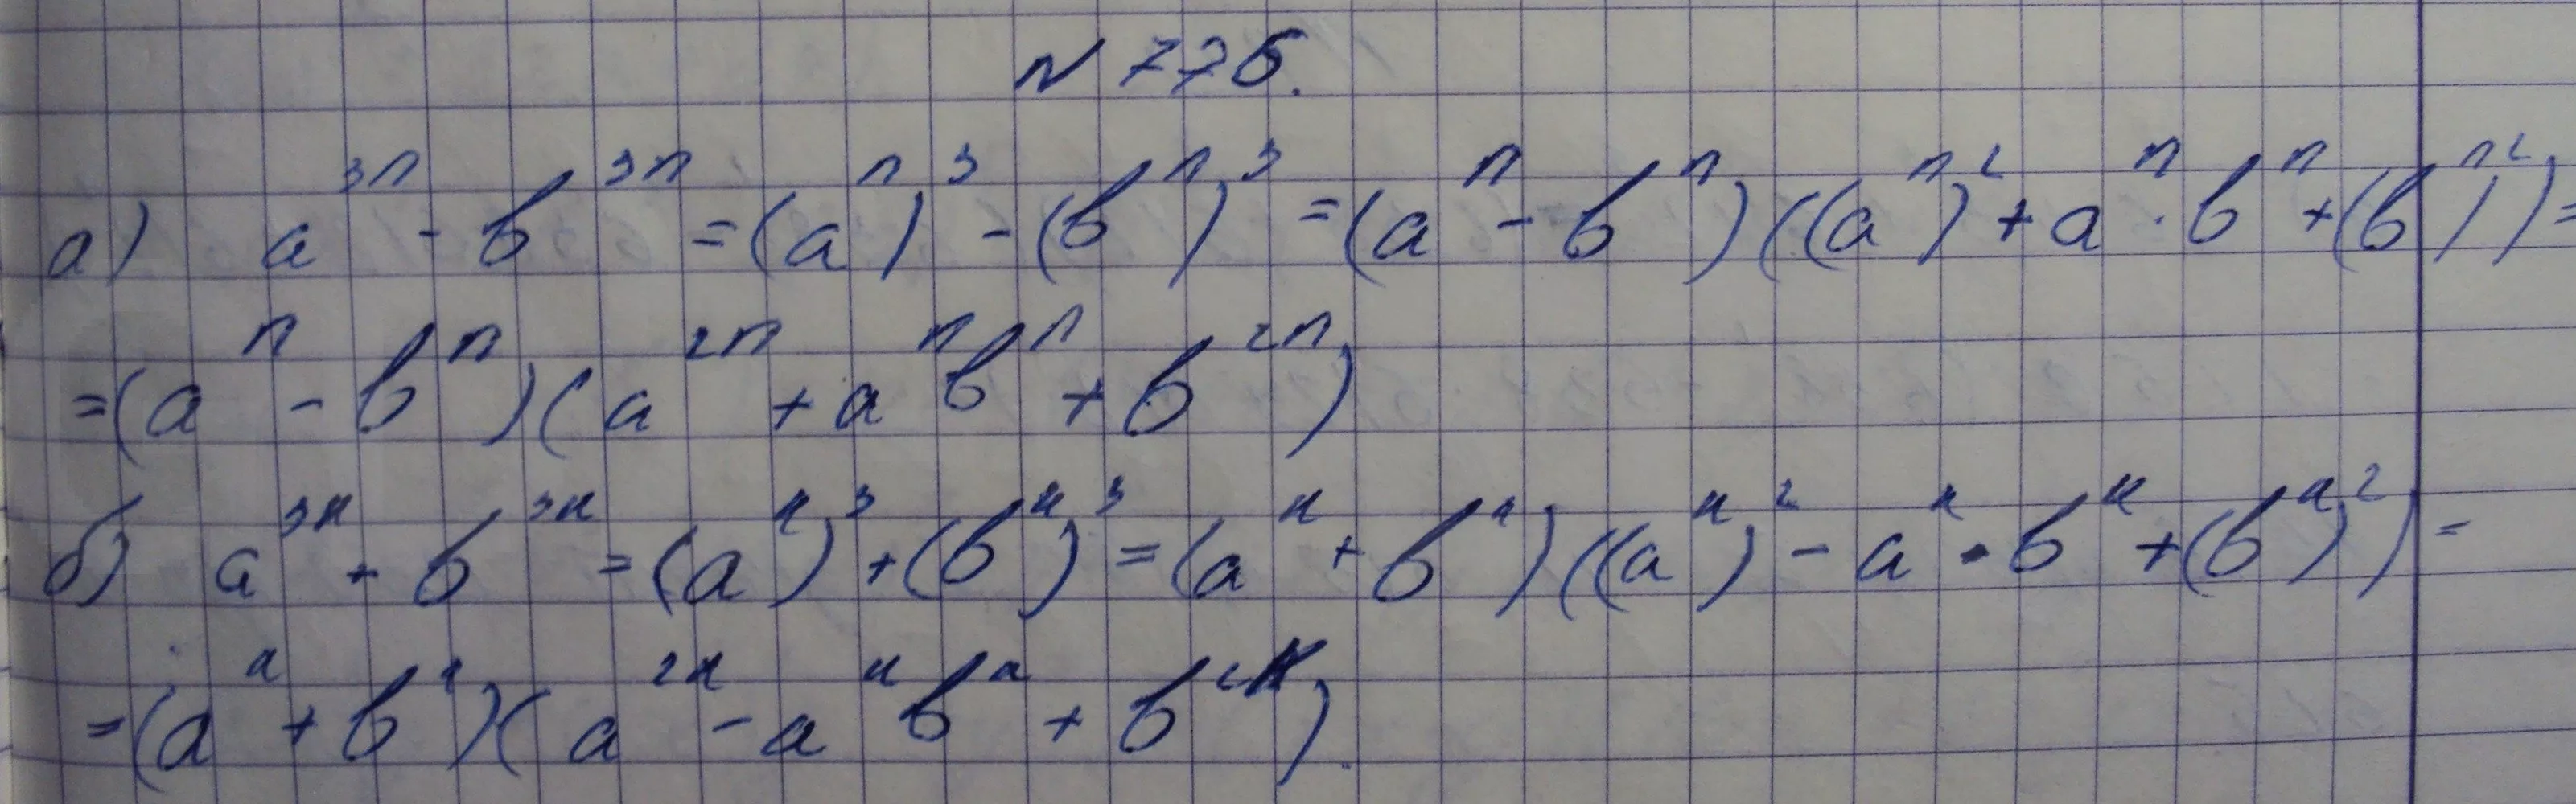 № 776.
а) a³ⁿ - b³ⁿ = (aⁿ)³ - (bⁿ)³ = (aⁿ - bⁿ)((aⁿ)² + aⁿ · bⁿ + (bⁿ)²) =
= (aⁿ - bⁿ)(a²ⁿ + aⁿbⁿ + b²ⁿ)
б) a³ᵏ + b³ᵏ = (aᵏ)³ + (bᵏ)³ = (aᵏ + bᵏ)((aᵏ)² - aᵏ · bᵏ + (bᵏ)²) =
= (aᵏ + bᵏ)(a²ᵏ - aᵏbᵏ + b²ᵏ).